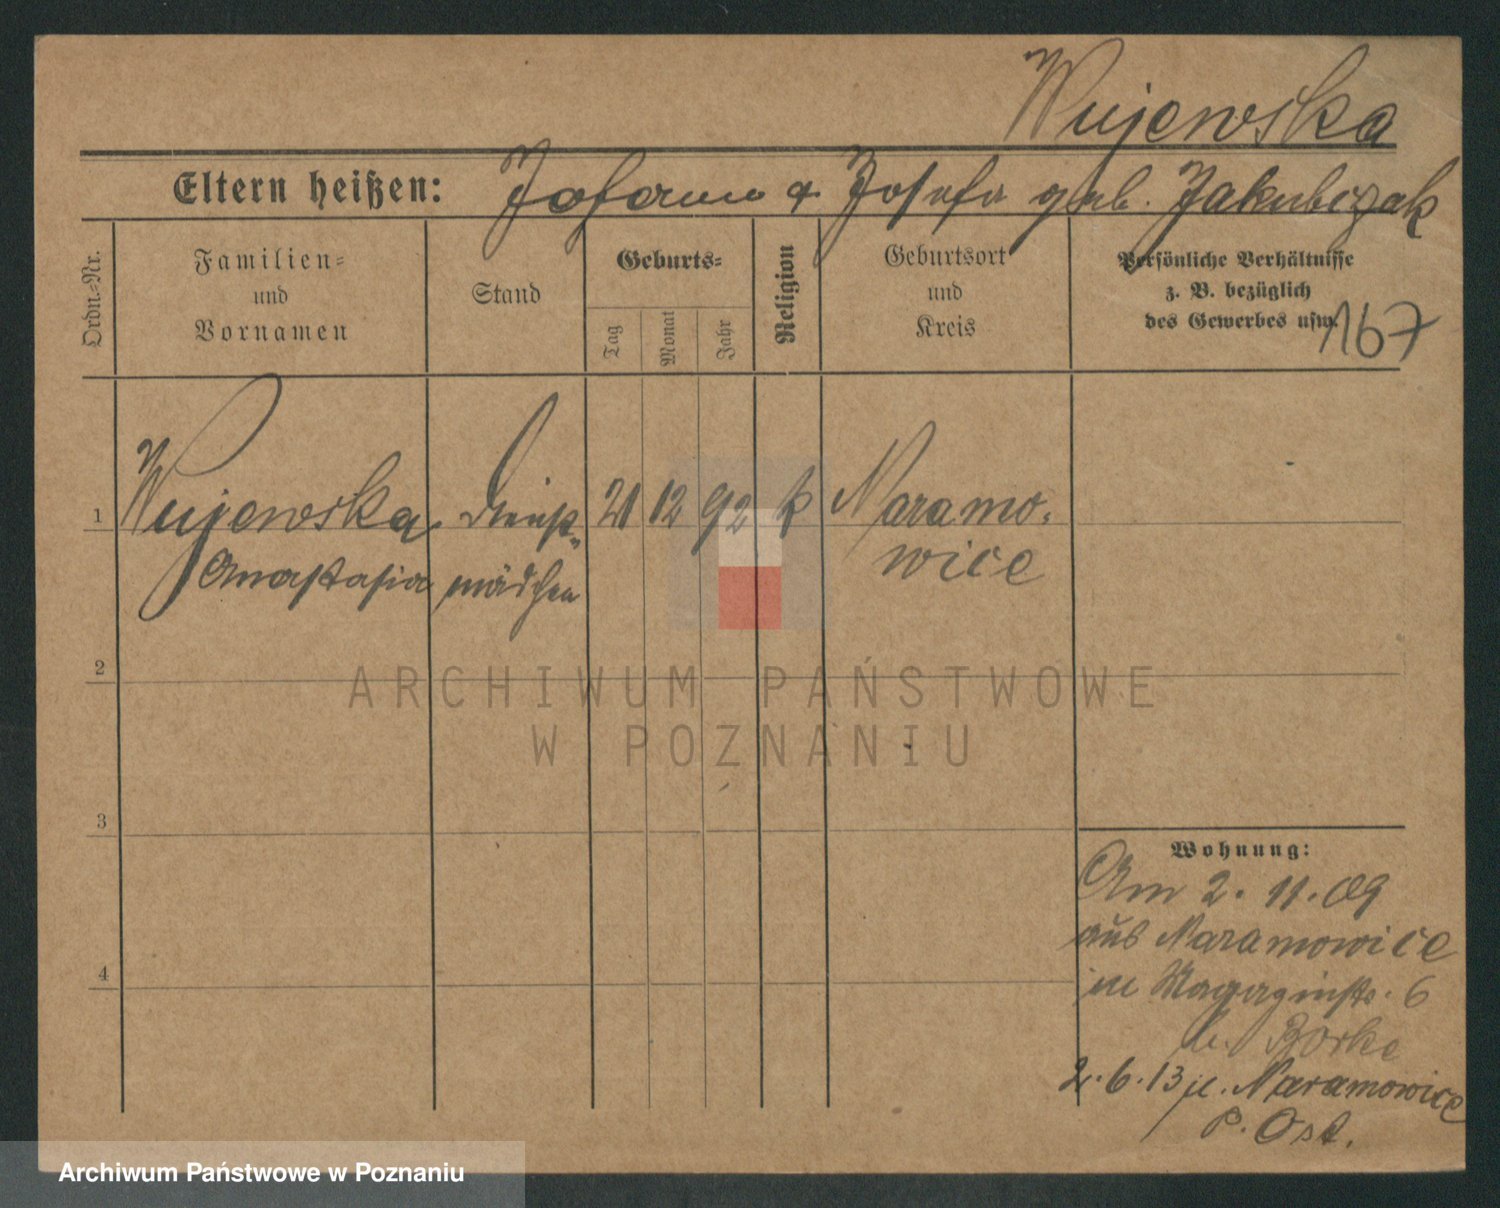 Wujewska
Eltern heißen: Johann & Josefa geb. Jakubczak
Ordn.-Nr.
Familien-
und
Vornamen
Stand
Geburts-
Tag
Monat
Jahr
Religion
Geburtsort
und
Kreis
Persönliche Verhältnisse
z. B. bezüglich
des Gewerbes usw.
167
1 Wujewska Dienst- 21 12 92 k Naramo-
Anastasia mädchen wice
2
3
4
Wohnung:
Am 2. 11. 09
aus Naramowice
in Magazinstr. 6
b. Borke
2. 6. 13 n. Naramowice
P. Ost.
ARCHIWUM PAŃSTWOWE
W POZNANIU
Archiwum Państwowe w Poznaniu